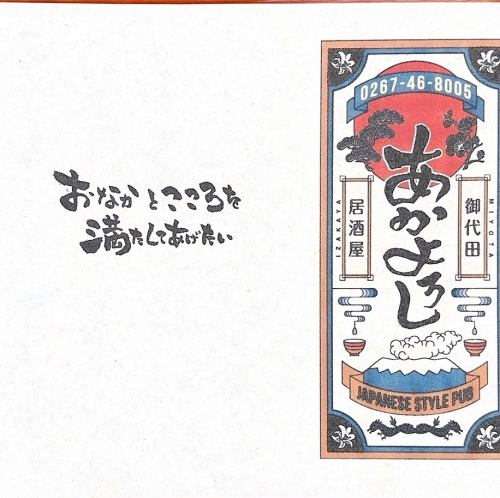 おなかとこころを
満たしてあげたい
0267-46-8005
あかよろし
居酒屋
IZAKAYA
御代田
MIYOTA
JAPANESE STYLE PUB